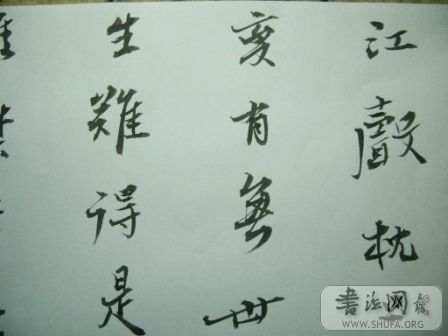 江聲枕
變有無世
生難得是
書法网
WWW.SHUFA.ORG